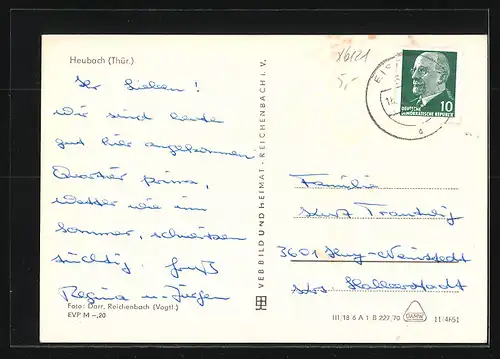 Heubach (Thür.)
Ihr Lieben!
Wir sind heute
gut hier angekommen
Quartier prima,
Wetter wie im
Sommer, schwitzen
tüchtig. Gruß
Regina u. Jürgen
Foto: Darr, Reichenbach (Vogtl.)
EVP M –,20
VEB BILD UND HEIMAT · REICHENBACH i. V.
X6121
5,-
EIS
18.
10
DEUTSCHE
DEMOKRATISCHE REPUBLIK
Familie
Kurt
3601
Str.
III 18 6 A 1 B 227/70
DAMW
11/4651